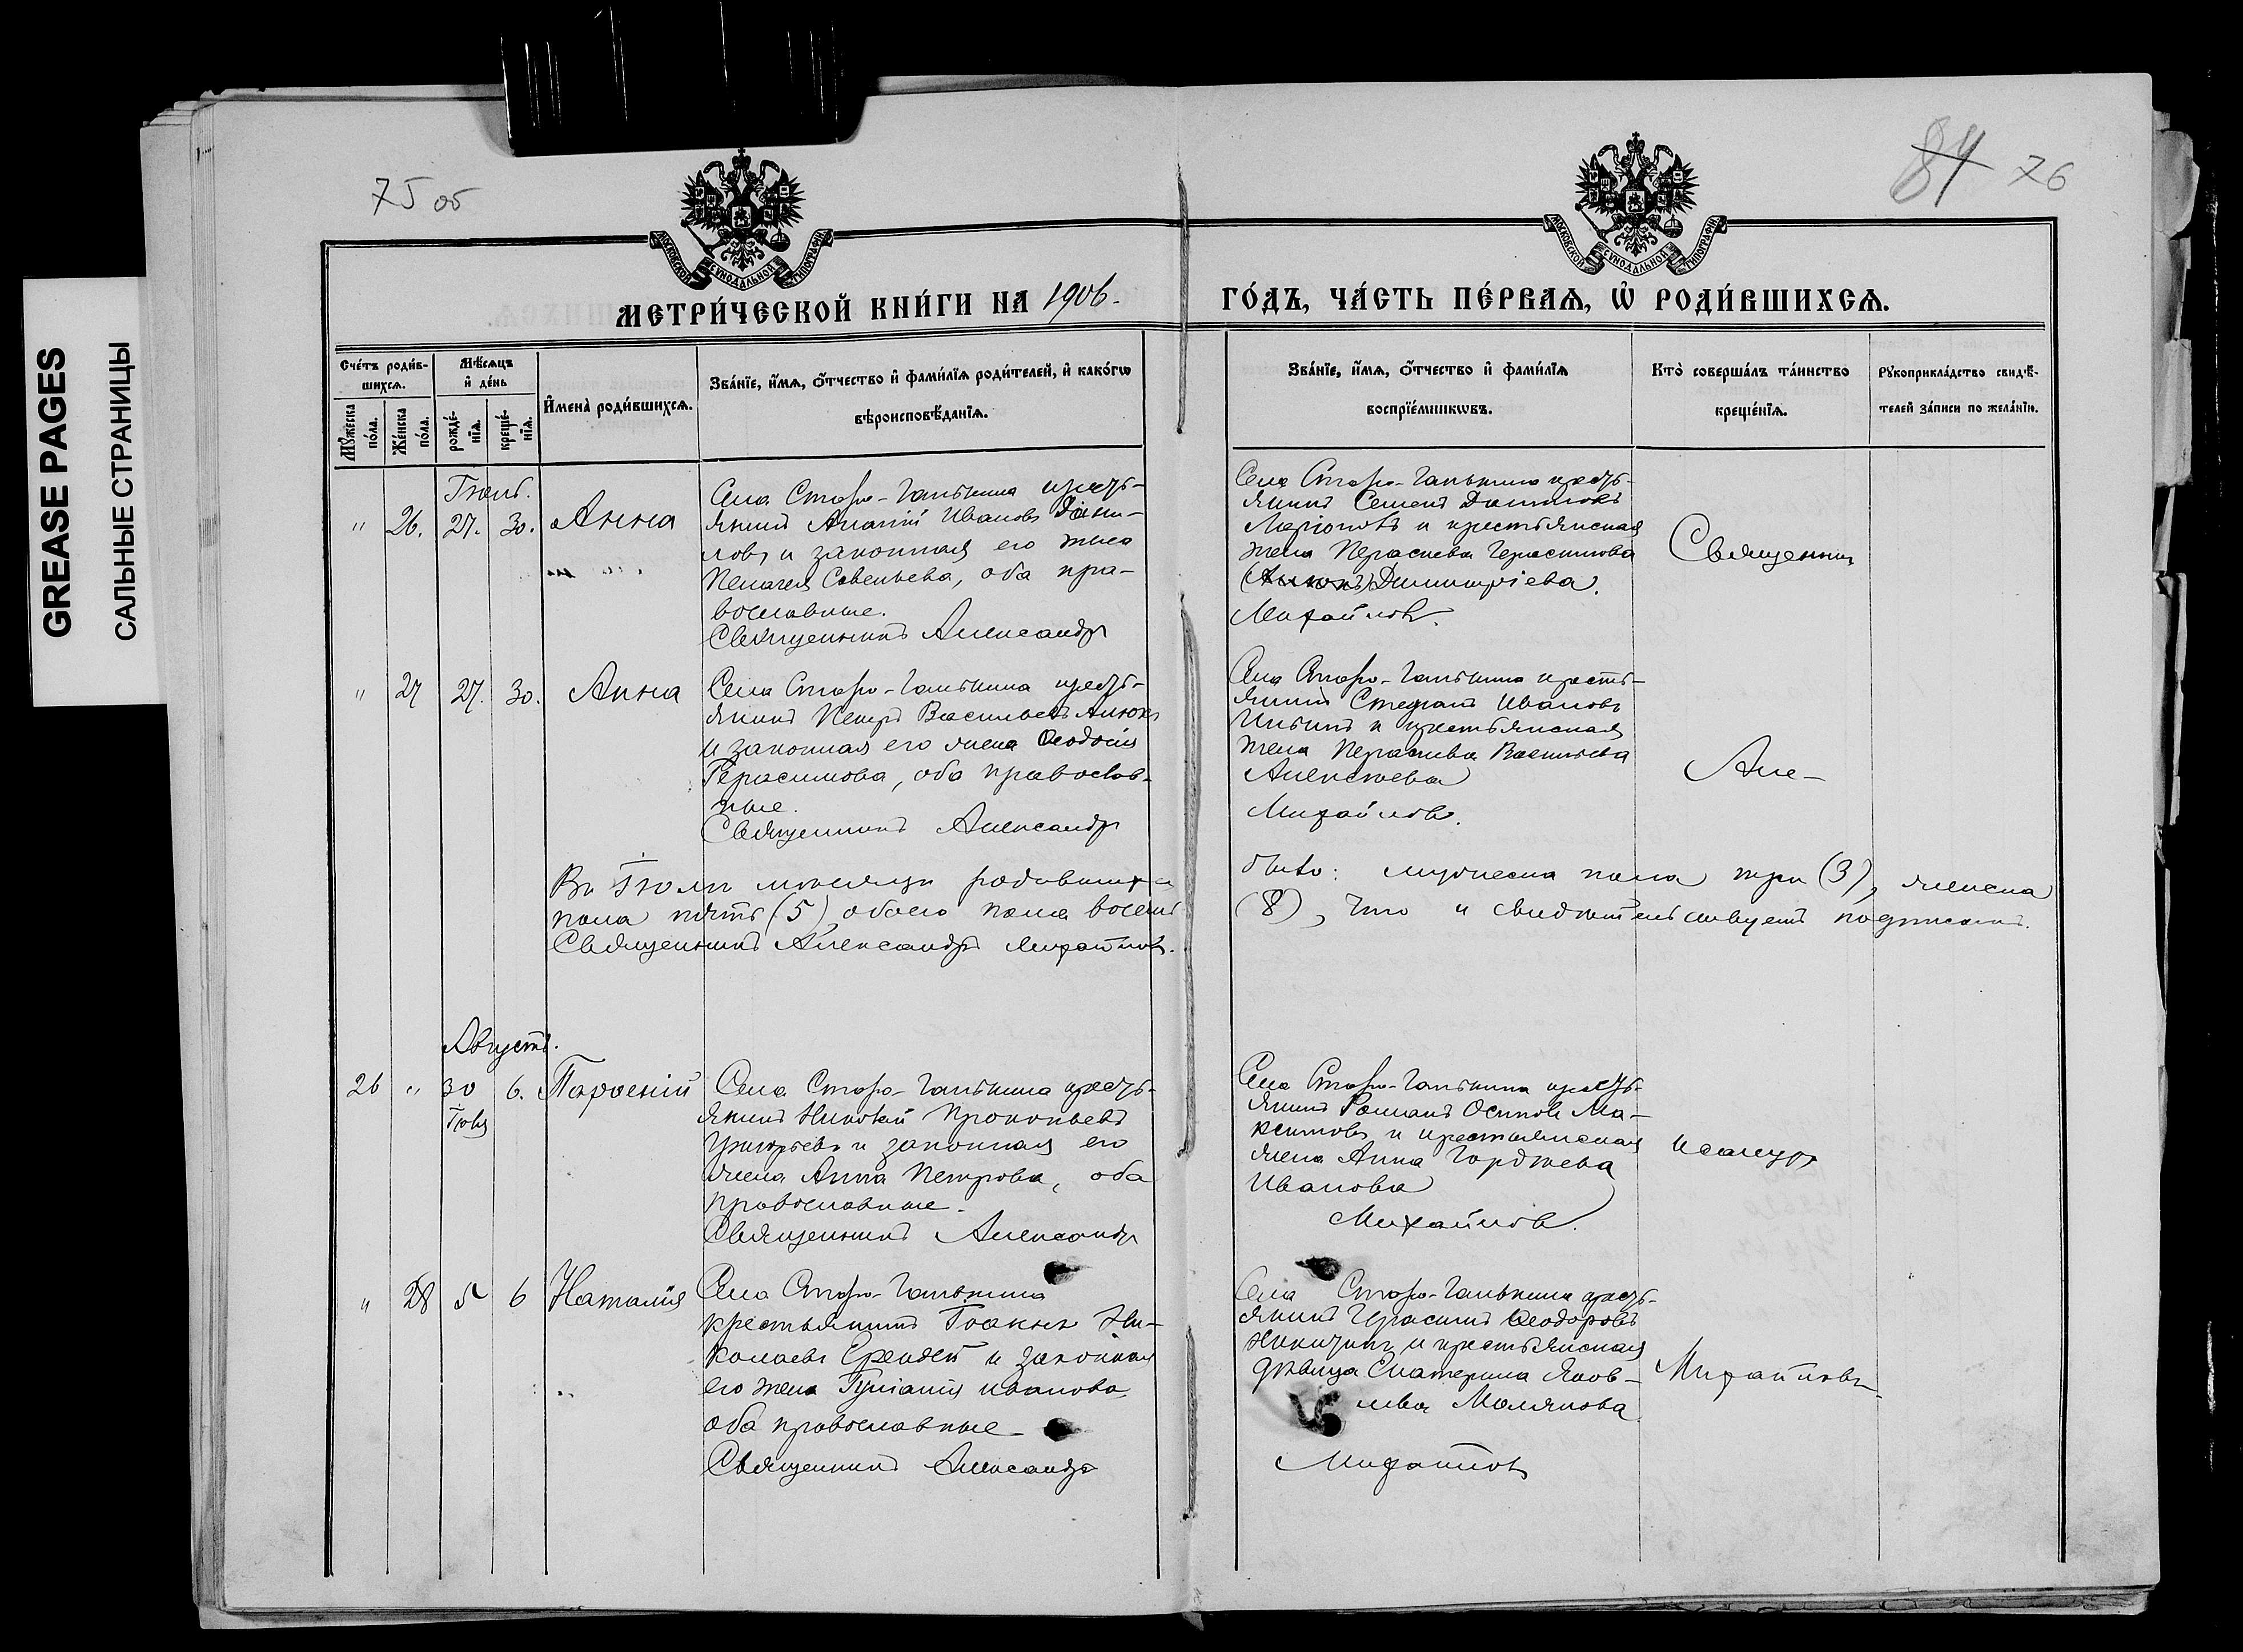 GREASE PAGES
САЛЬНЫЕ СТРАНИЦЫ
75 об
84 76
МОСКОВСКОЙ СУНОДАЛЬНОЙ ТИПОГРАФІИ
МОСКОВСКОЙ СУНОДАЛЬНОЙ ТИПОГРАФІИ
МЕТРИ́ЧЕСКОЙ КНИ́ГИ НА 1906.
ГО́ДЪ, ЧА́СТЬ ПЕ́РВАѦ, Ѡ҆ РОДИ́ВШИХСѦ.
Сче́тъ роди́в-
шихсѧ.
Мꙋ́жеска по́ла.
Же́нска по́ла.
Мѣ́сѧцъ
и҆ де́нь
рожде́-
нїѧ.
креще́-
нїѧ.
И҆мена̀ роди́вшихсѧ.
Зва́нїе, и҆́мѧ, ѻ҆́тчество и҆ фами́лїѧ роди́телей, и҆ како́гѡ
вѣроисповѣ́данїѧ.
Зва́нїе, и҆́мѧ, ѻ҆́тчество и҆ фами́лїѧ
воспрїе́мникѡвъ.
Кто̀ соверша́лъ та́инство
креще́нїѧ.
Рꙋкоприкла́дство свидѣ́-
телей за́писи по жела́нїю.
Іюль.
" 26. 27. 30. Анна
Села Старо-Ганькина кресть-
янинъ Ананій Ивановъ Дани-
ловъ и законная его жена
Пелагея Савельева, оба пра-
вославные.
Священникъ Александръ
Села Старо-Ганькина кресть-
янинъ Семенъ
и крестьянская
жена Параскева Герасимова
Димитріева.
Михайловъ.
Священникъ
" 27 27. 30. Анна
Села Старо-Ганькина кресть-
янинъ Петръ Васильевъ Анюкъ
и законная его жена Ѳеодосія
Герасимова, оба православ-
ные.
Священникъ Александръ
Села Старо-Ганькина кресть-
янинъ Стефанъ Ивановъ
Ильинъ и крестьянская
жена Параскева Васильева
Алексѣева
Михайловъ.
Але-
Въ Іюлѣ мѣсяцѣ родившихся
было: мужеска пола три (3), женска
пола пять (5), обоего пола восемь
(8), что и свидѣтельствуетъ подписомъ.
Священникъ Александръ Михайловъ.
Августъ.
26 " 30 Іюля 6. Парѳеній
Села Старо-Ганькина кресть-
янинъ Николай Прокопьевъ
Григорьевъ и законная его
жена Анна Петрова, оба
православные.
Священникъ Александръ
Села Старо-Ганькина кресть-
янинъ Романъ Осиповъ Ма-
ксимовъ и крестьянская
жена Анна Гордѣева
Иванова
Михайловъ.
ксандръ
" 28 5 6 Наталія
Села Старо-Ганькина
крестьянинъ Іоакимъ Ни-
колаевъ и законная
его жена Іуліанія Иванова
оба православные
Священникъ Александръ
Села Старо-Ганькина кресть-
янинъ Герасимъ Ѳеодоровъ
Никитинъ и крестьянская
дѣвица Екатерина Яков-
лева Молякова
Михайловъ
Михайловъ